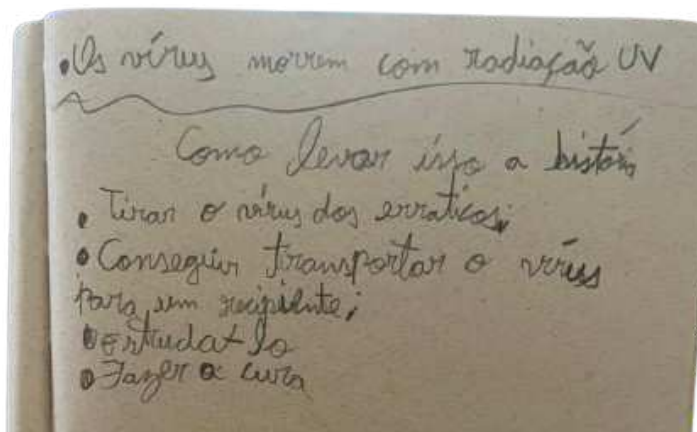 •Os vírus morrem com radiação UV
Como levar isso a história
• Tirar o vírus dos erraticos;
• Conseguir transportar o vírus
para um recipiente;
• estudat-lo
• Fazer a cura